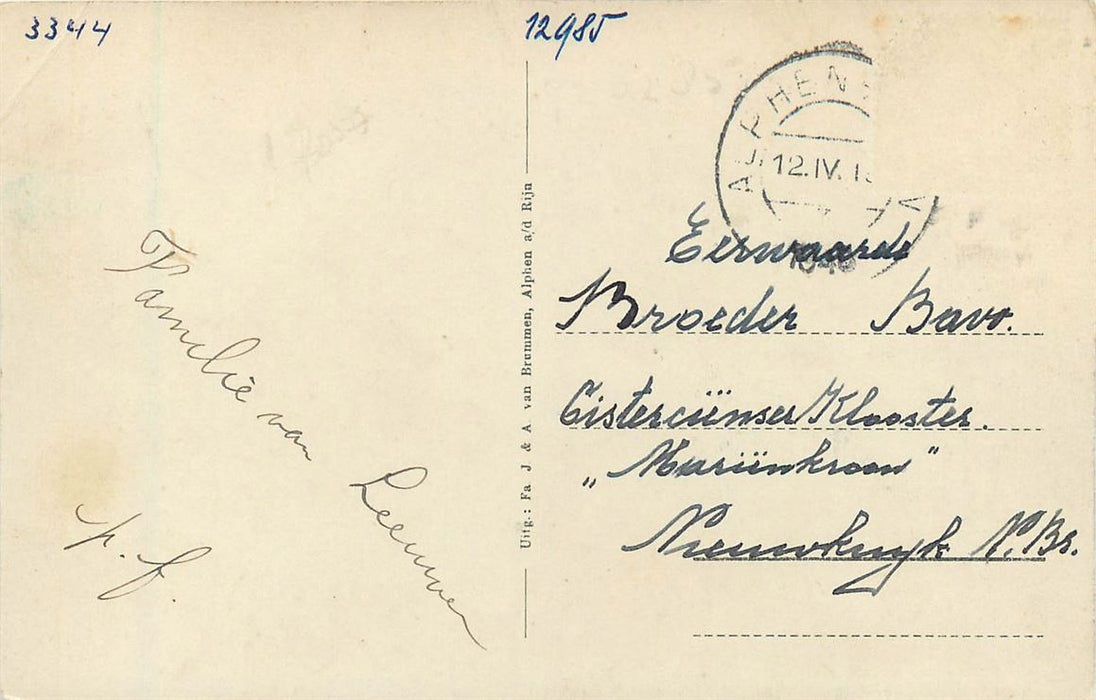 3344
12985
ALPHEN
12.IV.1
1946
Familie van Leeuwen
p. f.
Uitg.: Fa J & A van Brummen, Alphen a/d Rijn
Eerwaarde
Broeder Bavo.
Cisterciënser Klooster.
„Mariënkroon"
Nieuwkuyk N.Br.